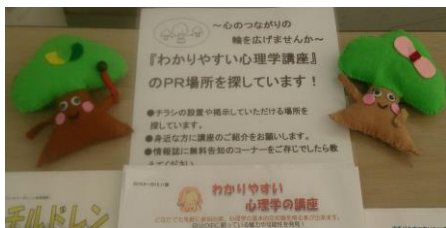 ～心のつながりの
輪を広げませんか～
『わかりやすい心理学講座』
のPR場所を探しています！
●チラシの設置や掲示していただける場所を
探しています。
●身近な方に講座のご紹介をお願いします。
●情報誌に無料告知のコーナーをご存じでしたら教
えてください
わかりやすい
心理学の講座
チルドレン